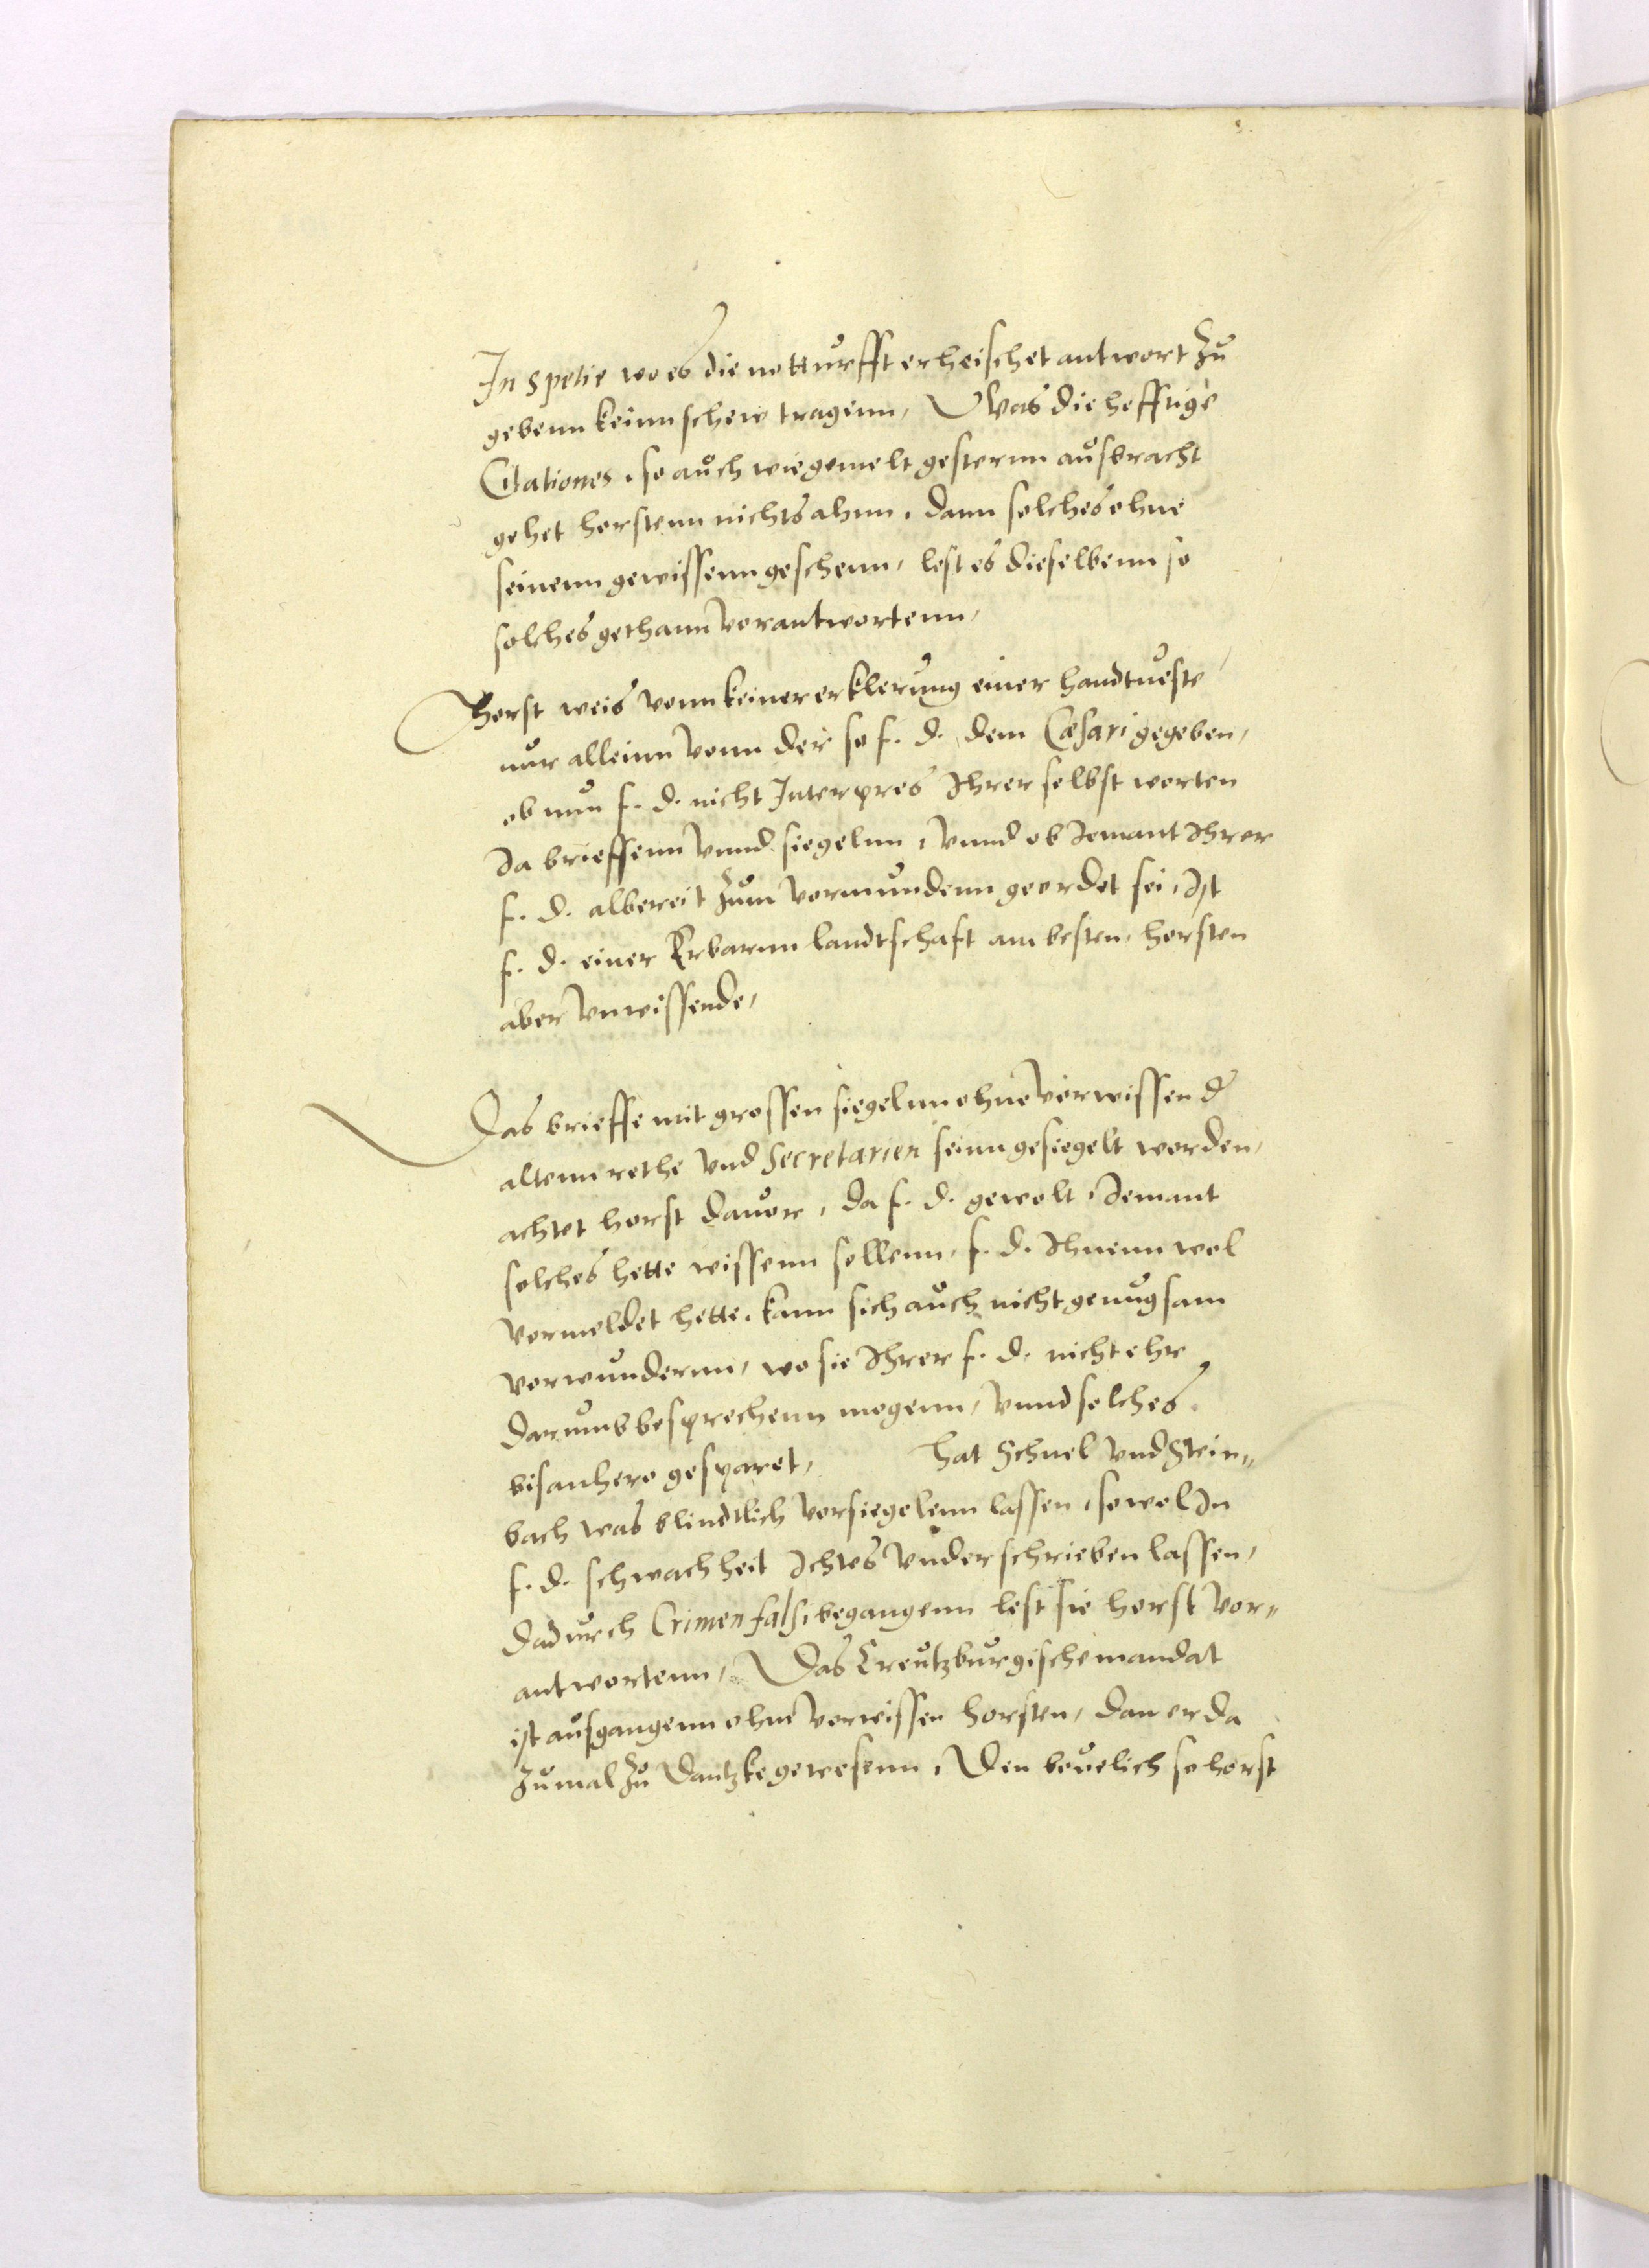 In spetie wo es die notturfft erheischet antwort zu
gebenn keinn schew tragenn, Was die hefftige
Citationes, so auch wie gemelt gesternn ausbracht
gehet horstenn nichts ahnn, dann solches ohne
seinenn gewissenn geschenn, lest es dieselbenn so
solches gethann vorantwortenn,
Horst weis vonn keiner erklerung einer handtueste
nur alleinn vonn der so f. d. dem Cæsari gegeben,
ob nun f. d. nicht Interpres Ihrer selbst worten
Ja brieffenn vnnd siegelnn, vnnd ob Jemant Ihrer
f. d. albereit zum vormundenn geordet sei, Ist
f. d. einer Erbarnn landtschaft am besten, horsten
aber vnwissende,
Das brieffe mit grossen siegelnn ohne vorwissen d
altenn rethe vnd Secretarien seinn gesiegelt worden,
achtet horst dauor, da f. d. gewolt, Jemant
solches hette wissenn sollenn, f. d. Ihnenn wol
vormeldet hette, kann sich auch nicht genugsam
vorwundernn, wo sie Ihrer f. d. nicht ehr
darumb besprechenn mogenn, vnnd solches
bisanhero gesparet, hat Schnel vnd Stein„
bach was blindtlich vorsiegelenn lassen, sowol In
f. d. schwachheit Ichtes vnderschrieben lassen,
dadurch Crimen falsi begangenn lest sie horst vor„
antwortenn, Das Creutzburgische mandat
ist ausgangenn ohne vorwissen horsten, dan er da
zumal zu Dantzke gewesenn, Den beuelich so horst